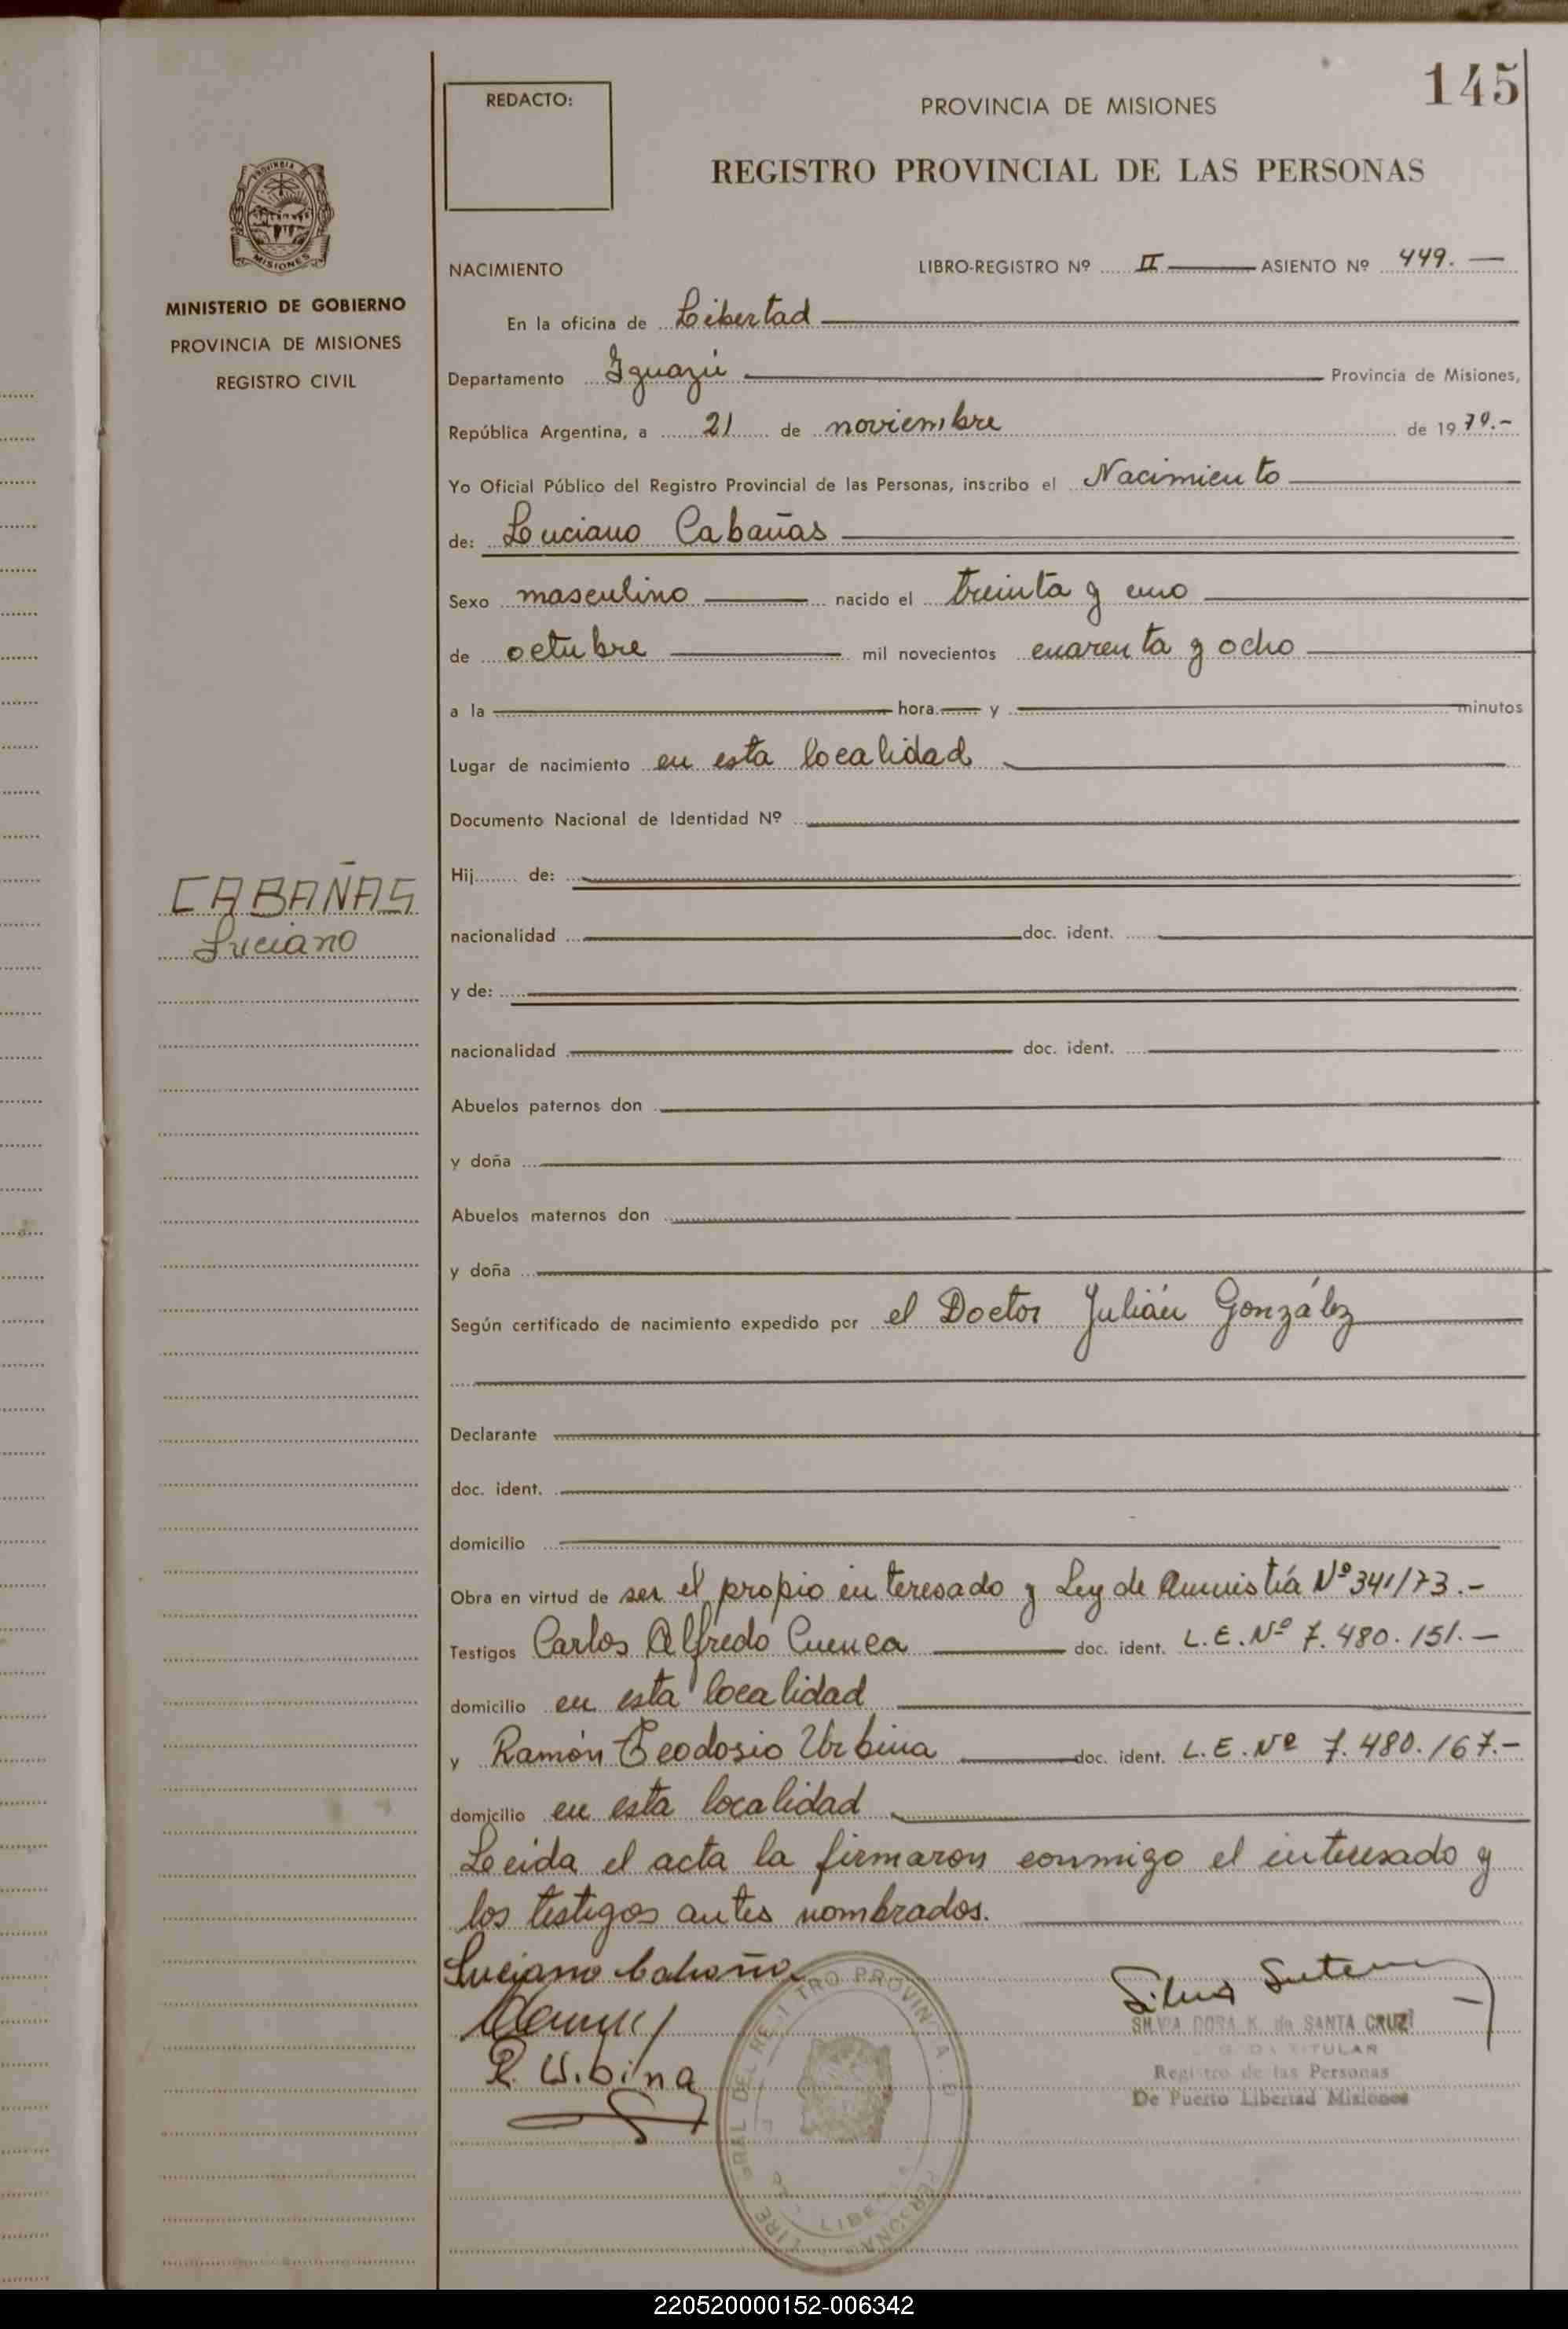 145
REDACTO:
PROVINCIA DE MISIONES
REGISTRO PROVINCIAL DE LAS PERSONAS
MISIONES
MINISTERIO DE GOBIERNO
PROVINCIA DE MISIONES
REGISTRO CIVIL
CABAÑAS
Luciano
NACIMIENTO LIBRO-REGISTRO Nº II ASIENTO Nº 449.
En la oficina de Libertad
Departamento Iguazú Provincia de Misiones,
República Argentina, a 21 de noviembre de 19
Yo Oficial Público del Registro Provincial de las Personas, inscribo el Nacimiento
de: Luciano Cabañas
Sexo masculino nacido el treinta y uno
de octubre mil novecientos cuarenta y ocho
a la hora y minutos
Lugar de nacimiento en esta localidad
Documento Nacional de Identidad Nº
Hij de:
nacionalidad doc. ident.
y de:
nacionalidad doc. ident.
Abuelos paternos don
y doña
Abuelos maternos don
y doña
Según certificado de nacimiento expedido por el Doctor Julián González
Declarante
doc. ident.
domicilio
Obra en virtud de ser el propio interesado y Ley de Amnistía Nº 341/73.-
Testigos Carlos Alfredo Cuenca doc. ident. L.E. Nº 7.480.151.-
domicilio en esta localidad
y Ramón Teodosio Urbina doc. ident. L.E. Nº 7.480.167.-
domicilio en esta localidad
Leída el acta la firmaron conmigo el interesado y
los testigos antes nombrados.
Luciano Cabaña
R. Urbina
SILVIA DORA K. de SANTA CRUZ
TITULAR
Registro de las Personas
De Puerto Libertad Misiones
220520000152-006342